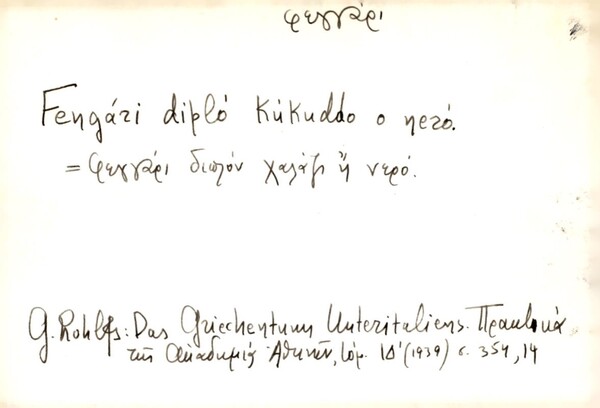 φεγγάρι
Fengári dipló kúkuddo o neró.
= Φεγγάρι διπλόν χαλάζι ἤ νερό.
G. Rohlfs: Das Griechentum Unteritaliens. Πρακτικά
τῆς Ἀκαδημίας Ἀθηνῶν, τόμ. ΙΔ' (1939) σ. 354, 14